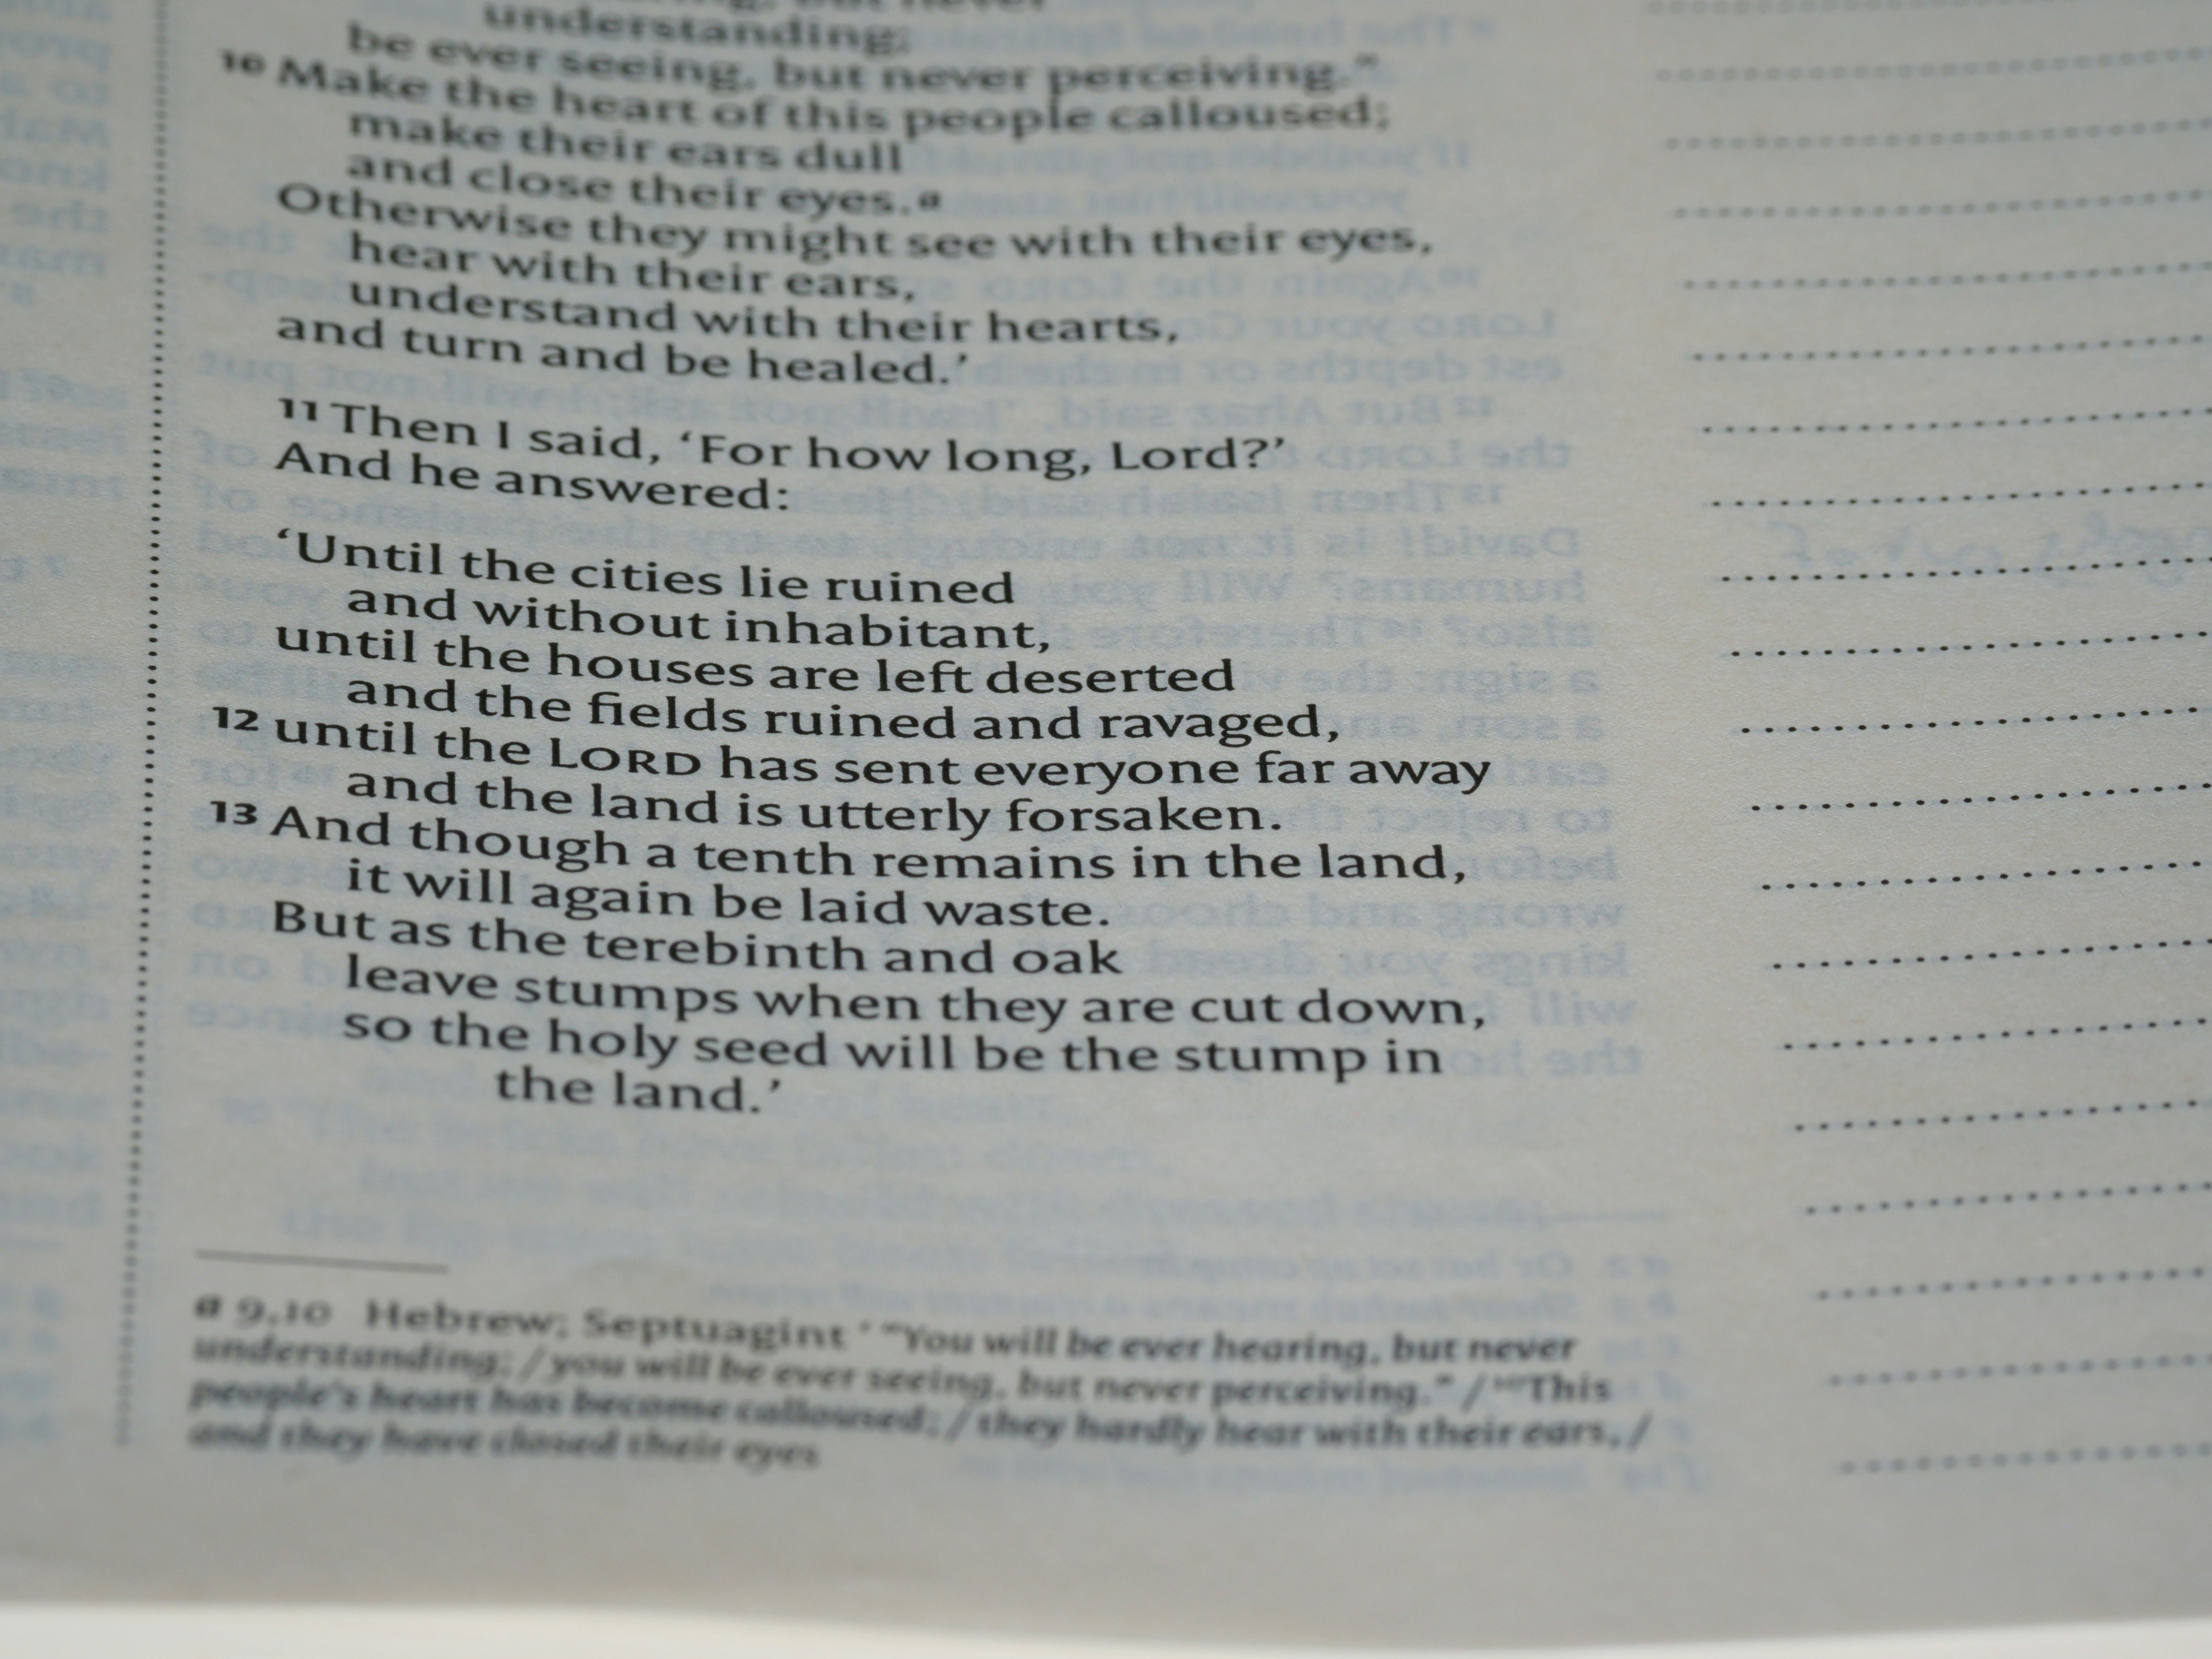 but never
understanding;
be ever seeing, but never perceiving.”
10 Make the heart of this people calloused;
make their ears dull
and close their eyes.a
Otherwise they might see with their eyes,
hear with their ears,
understand with their hearts,
and turn and be healed.’
11 Then I said, ‘For how long, Lord?’
And he answered:
‘Until the cities lie ruined
and without inhabitant,
until the houses are left deserted
and the fields ruined and ravaged,
12 until the LORD has sent everyone far away
and the land is utterly forsaken.
13 And though a tenth remains in the land,
it will again be laid waste.
But as the terebinth and oak
leave stumps when they are cut down,
so the holy seed will be the stump in
the land.’
a 9,10 Hebrew; Septuagint ‘ “You will be ever hearing, but never
understanding; / you will be ever seeing, but never perceiving.” / 10 This
people’s heart has become calloused; / they hardly hear with their ears, /
and they have closed their eyes